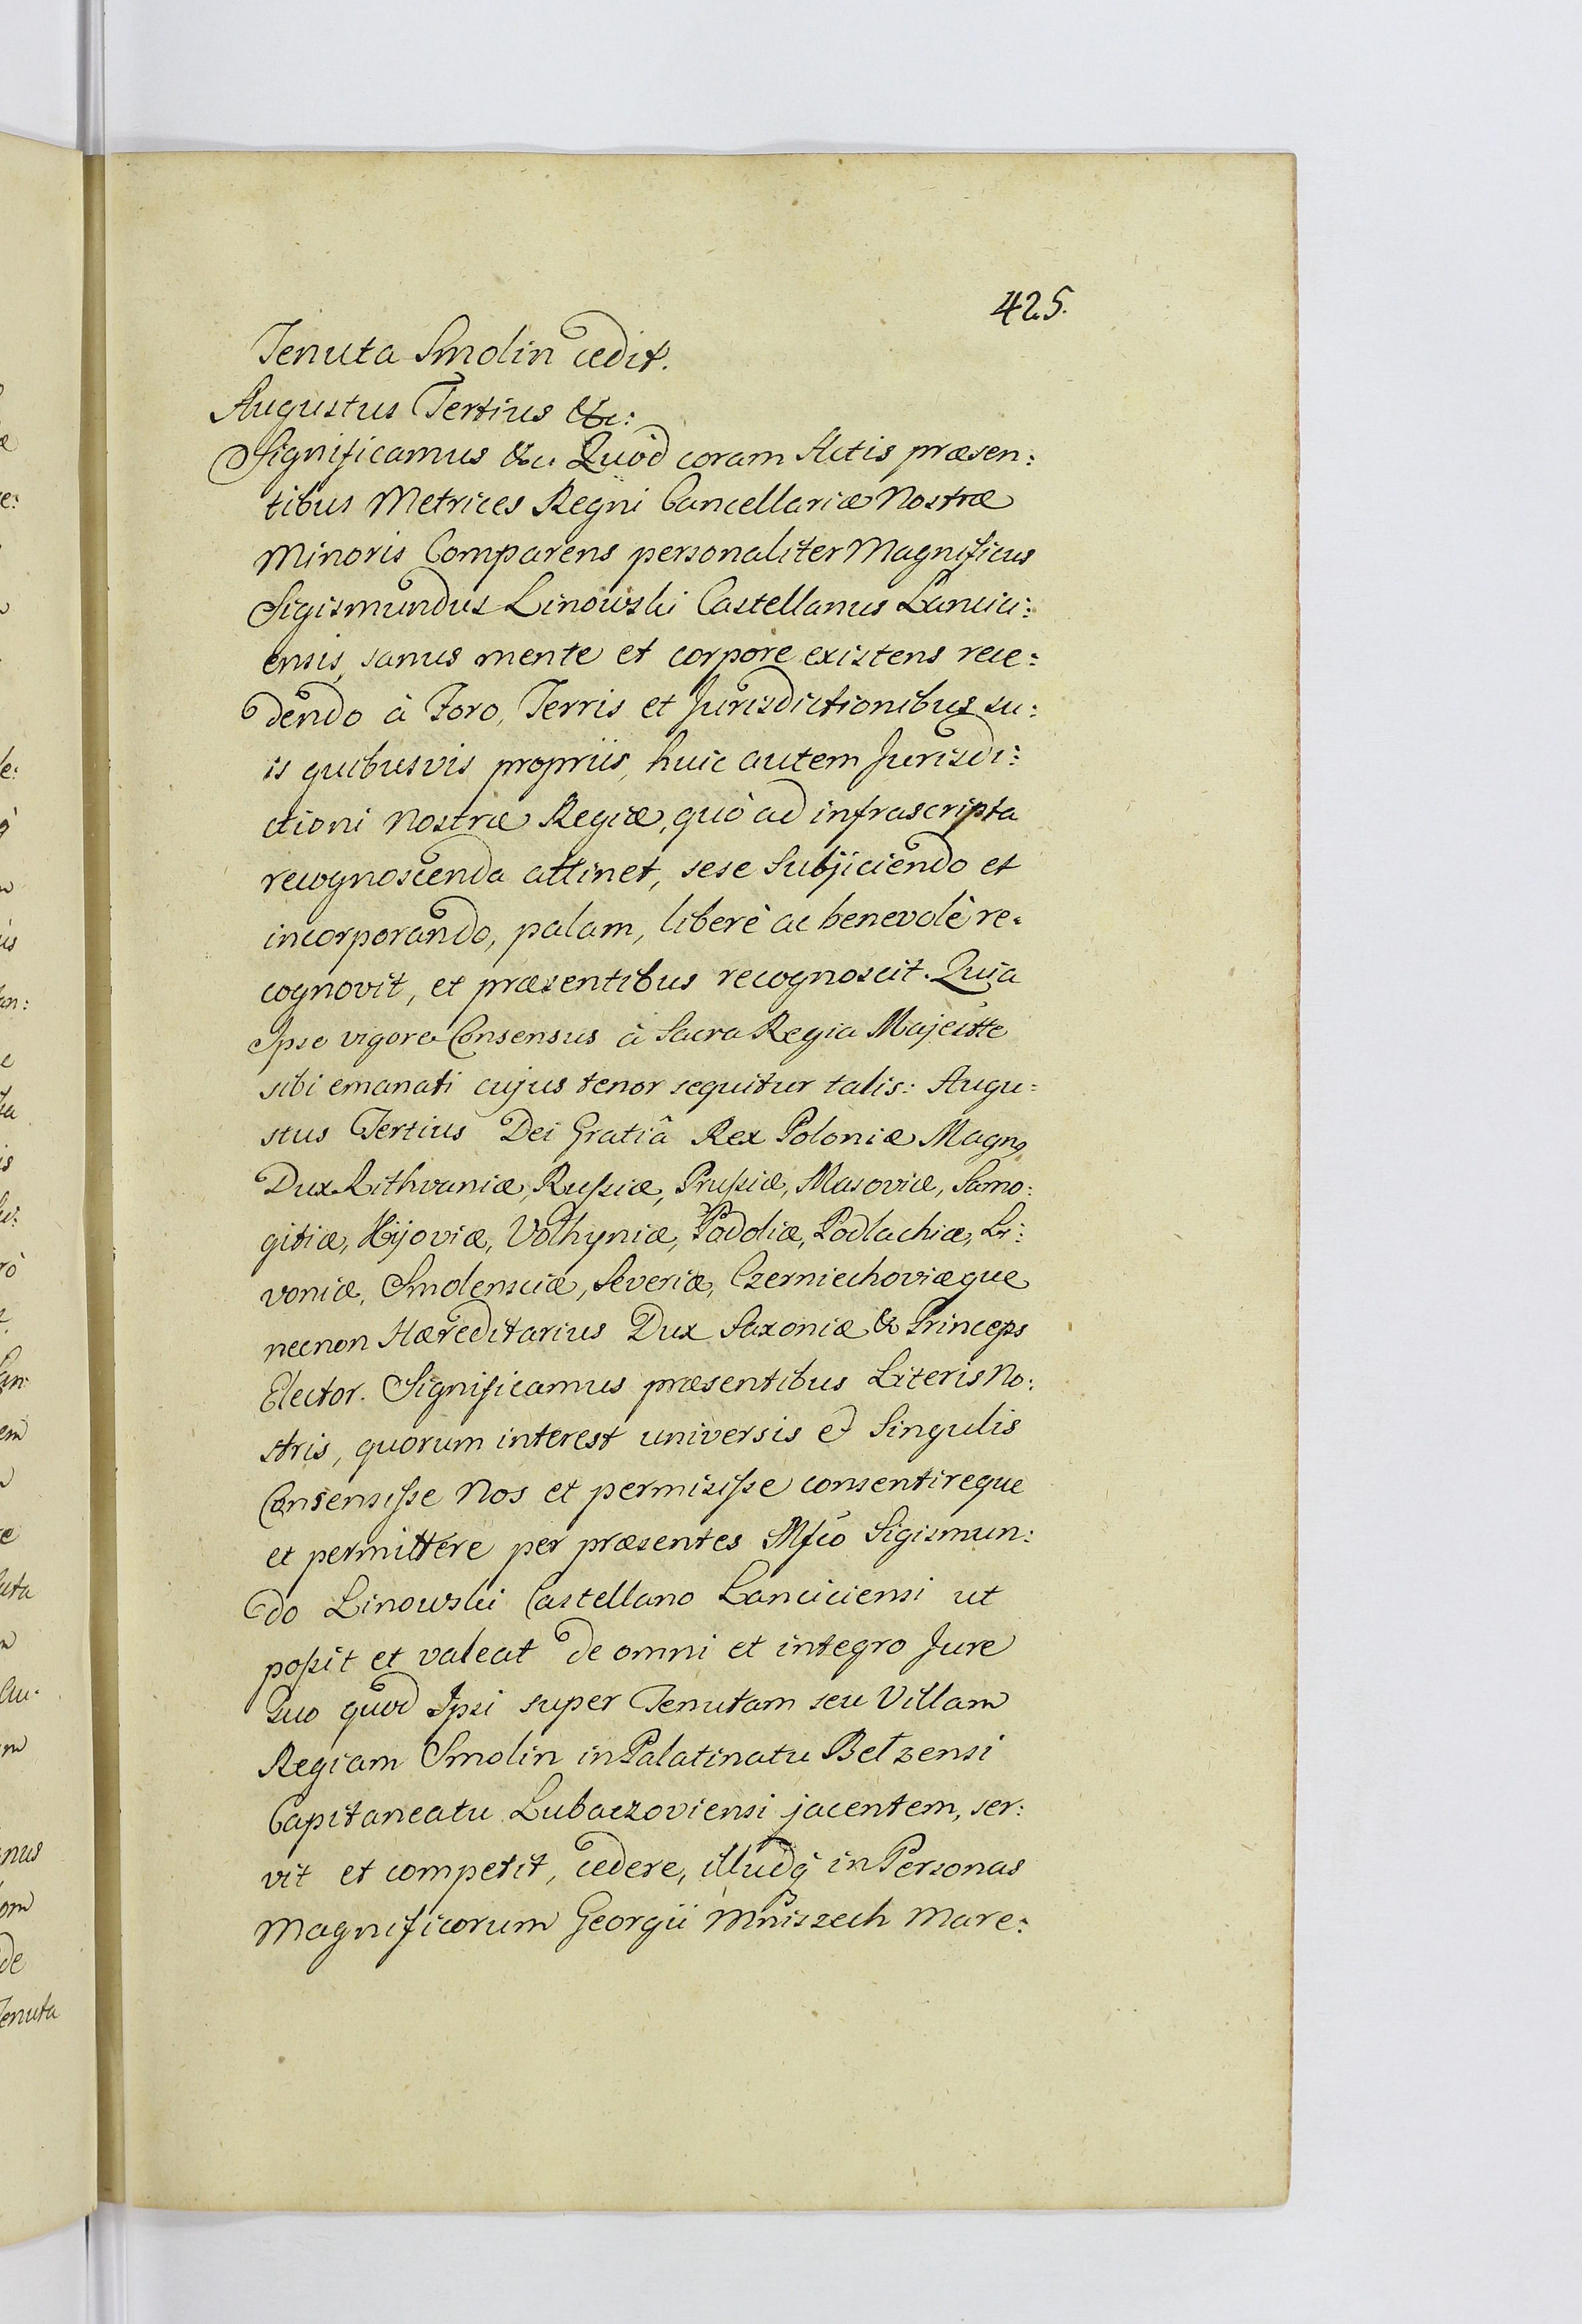 425.
Tenuta Smolin cedit.
Augustus Tertius &c:
Significamus &c. Quòd coram Actis præsen:
tibus Metrices Regni Cancellariæ Nostræ
Minoris Comparens personaliter Magnificus
Sigismundus Linowski Castellanus Lancici:
ensis, sanus mente et corpore existens rece:
dendo à Foro, Terris et Jurisdictionibus su:
is quibusvis propriis, huic autem Jurisdi:
ctioni Nostræ Regiæ, quò ad infrascripta
recognoscenda attinet, sese subjiciendo et
incorporando, palam, liberè ac benevolè re:
cognovit, et præsentibus recognoscit. Quia
Ipse vigore Consensus à Sacra Regia Majestte
sibi emanati cujus tenor sequitur talis: Augu:
stus Tertius Dei Gratiâ Rex Poloniæ Magnꝯ
Dux Lithvaniæ, Rußiæ, Prußiæ, Masoviæ, Samo:
gitiæ, Kijoviæ, Volhyniæ, Podoliæ, Podlachiæ, Li:
voniæ, Smolensciæ, Severiæ, Czerniechoviæque
necnon Hæreditarius Dux Saxoniæ & Princeps
Elector. Significamus præsentibus Literis No:
stris, quorum interest universis et Singulis
Consensiße Nos et permisiße consentireque
et permittere per præsentes Mfco Sigismun:
do Linowski Castellano Lanciciensi ut
poßit et valeat de omni et integro Jure
Suo quod Ipsi super Tenutam seu Villam
Regiam Smolin in Palatinatu Belzensi
Capitaneatu Lubaczoviensi jacentem, ser:
vit et competit, cedere, illudq́ in Personas
Magnificorum Georgii Mniszech Mare: